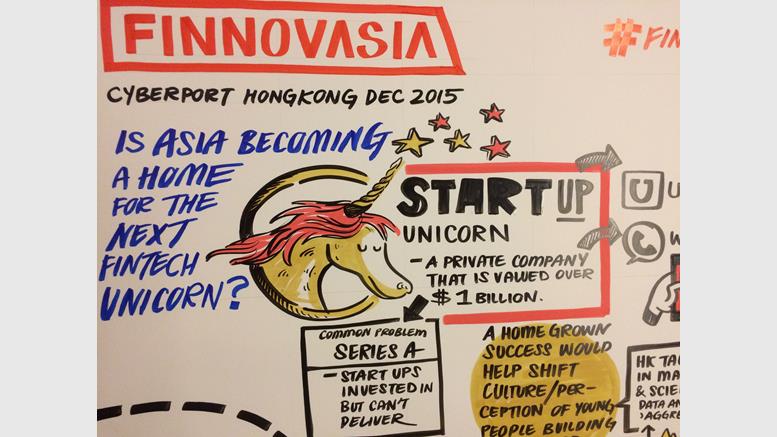 FINNOVASIA
CYBERPORT HONGKONG DEC 2015
IS ASIA BECOMING
A HOME
FOR THE
NEXT
FINTECH
UNICORN?
STARTUP
UNICORN
- A PRIVATE COMPANY
THAT IS VALUED OVER
$1 BILLION.
COMMON PROBLEM
SERIES A
- START UPS
INVESTED IN
BUT CAN'T
DELIVER
A HOME GROWN
SUCCESS WOULD
HELP SHIFT
CULTURE/PER-
CEPTION OF YOUNG
PEOPLE BUILDING
#FIN
U
U
W
HK TA
IN MA
& SCIE
DATA AN